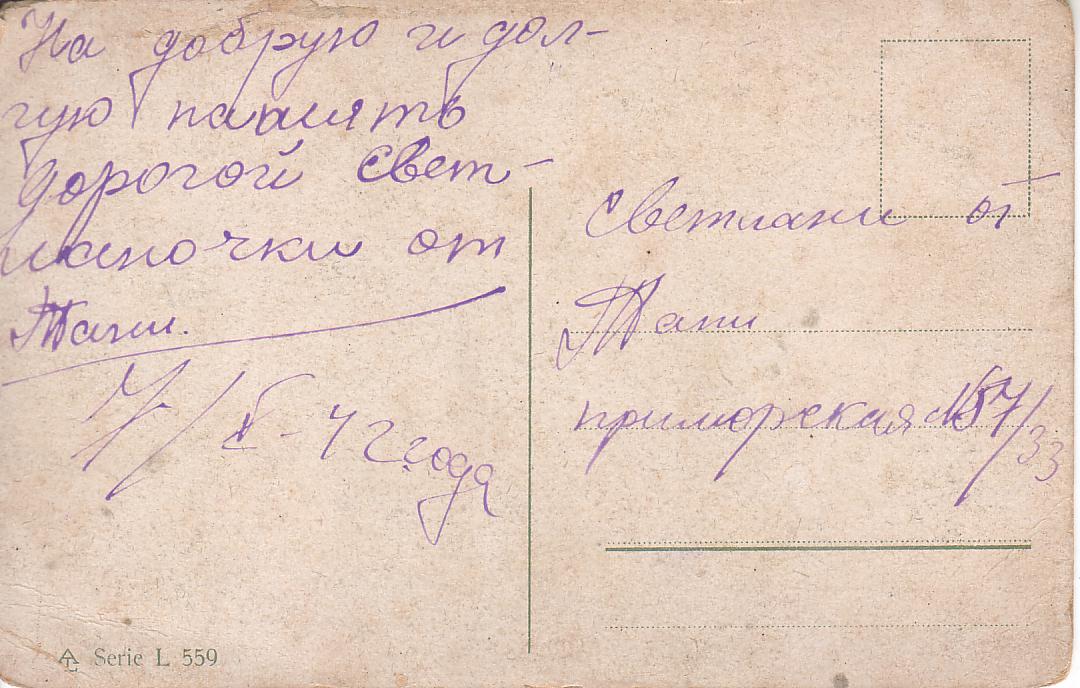 На добрую и дол-
гую память
дорогой Свет-
ланочки от
Тани.
7/V - 42 года
Светлани от
Тани
приморская №57/33
Serie L 559